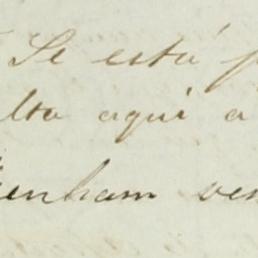 Se está p
lta aqui a
enham ven